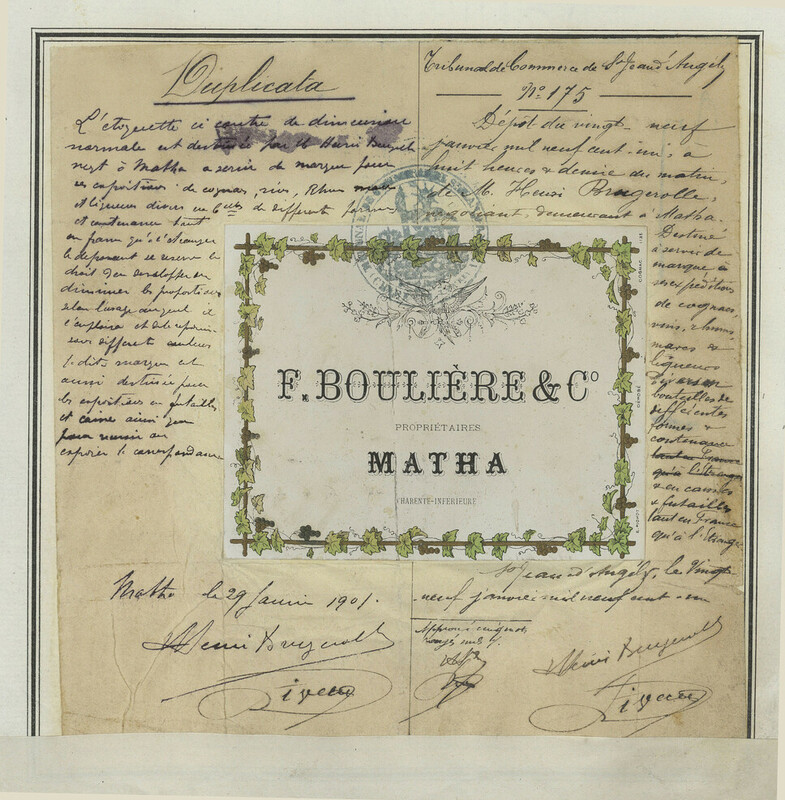 Duplicata
L'étiquette ci contre de dimension
normale est destinée par M Henri Brugerolle
negt à Matha a servir de marque pour
ses expéditions de cognac, vins, Rhum marcs
et liqueurs divers en Blles de différents formes
et contenance tant
en france qu'à l'étranger
le déposant se réserve le
droit d'en développer ou
diminuer les proportions
selon l'usage auquel il
l'emploiera et de l'imprimer
sous différents couleurs
la dite marque est
aussi destinée pour
les expéditions en futailles
et caisse ainsi que
pour
la correspondance
Matha le 29 Janvier 1901.
Henri Brugerolle
Tribunal de Commerce de St Jean d'Angély
No 175
Dépôt du vingt-neuf
janvier mil neuf cent un, à
huit heures & demie du matin,
de M. Henri Brugerolle,
négociant, demeurant à Matha.
Destiné
à servir de
marque à
ses expéditions
de cognacs,
vins, rhums,
marcs &
liqueurs
divers en
bouteilles de
différentes
formes &
contenance
tant en France
qu'à l'étranger
& en caisses
& futailles
tant en France
qu'à l'étranger
St Jean d'Angély, le vingt-
neuf janvier mil neuf cent un
Henri Brugerolle
F. BOULIÈRE & Co
PROPRIÉTAIRES
MATHA
CHARENTE-INFÉRIEURE
COGNAC
DÉPOSÉ